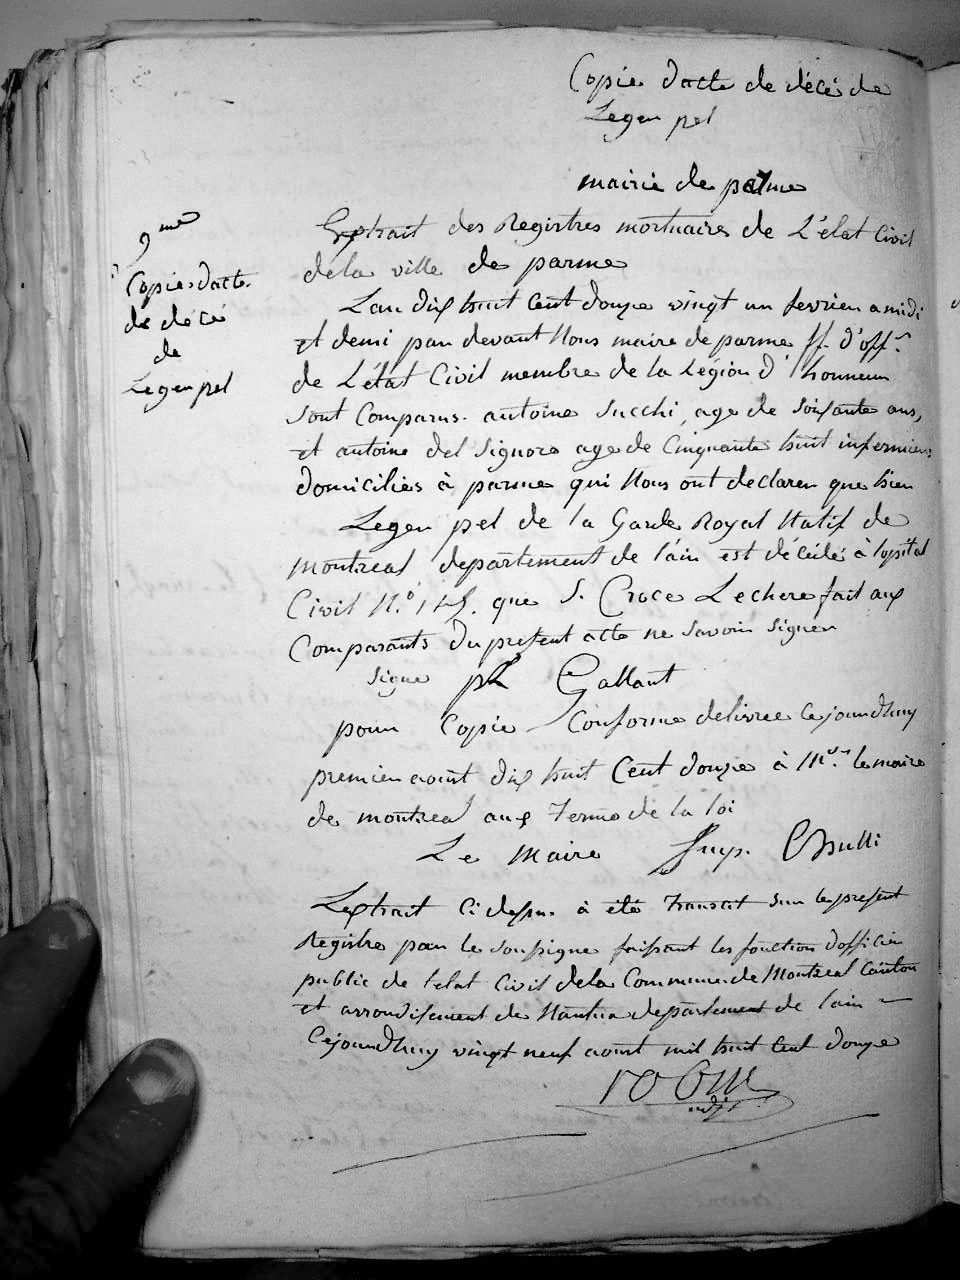 Copie d'acte de décé de
Legen pel
mairie de parme
9me
Copie d'acte
de décé
de
Legen pel
Extrait des Registres mortuaires de L'état Civil
de la ville de parme
L'an dix huit cent douze vingt un fevrier a midi
et demi par devant Nous maire de parme ff. d'offr
de L'état Civil membre de la Légion d'honneur
sont Comparus antoine Succhi, age de soixante ans,
et antoine del Signore age de Cinquante huit infermiers
domiciliés à parme qui Nous ont declaren que hier
Legen pel de la Garde Royal Natif de
montreal département de l'ain est décédé à lopital
Civil N.o 145. que S. Croce Lechere fait aux
Comparants du present acte ne savoir signer
Signe Gallant
pour Copie Conforme delivree Cejourdhuy
premier aout dix huit Cent douze à Mr. le maire
de montreal aux Terme de la loi
Le Maire
Lextrait Ci desu. à été Transcit sur le present
Registre par le soussigne faissant les fonction dofficier
public de letat Civil dela Commune de Montreal Canton
et arrondisement de Nantua departement de lain
Cejourdhuy vingt neuf aout mil huit Cent douze